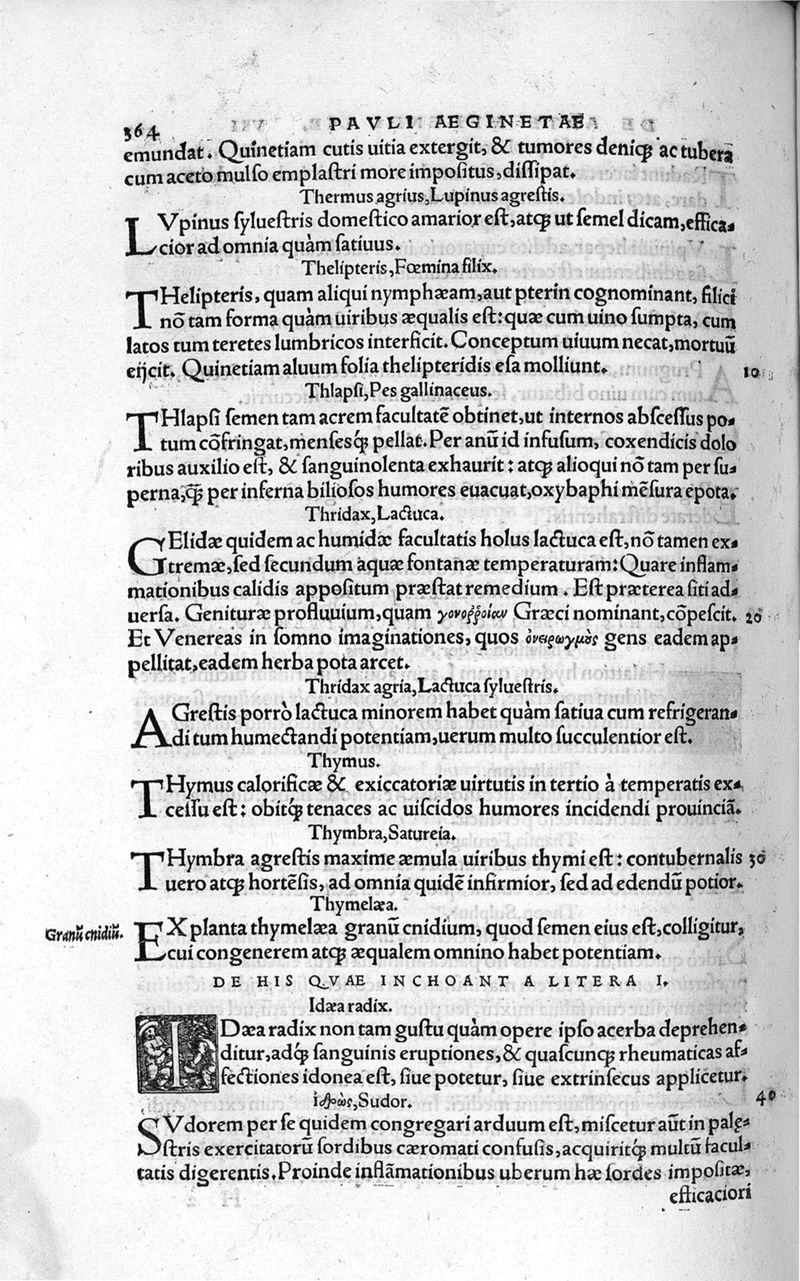 364 PAVLI AEGINETAE
emundat. Quinetiam cutis uitia extergit, & tumores deniqꝫ ac tubera
cum aceto mulso emplastri more impositus, dissipat.
Thermus agrius, Lupinus agrestis.
LVpinus syluestris domestico amarior est, atqꝫ ut semel dicam, effica-
cior ad omnia quàm satiuus.
Thelipteris, Fœmina filix.
THelipteris, quam aliqui nymphæam, aut pterin cognominant, filici
nō tam forma quàm uiribus æqualis est: quæ cum uino sumpta, cum
latos tum teretes lumbricos interficit. Conceptum uiuum necat, mortuū
eijcit. Quinetiam aluum folia thelipteridis esa molliunt. 10
Thlapsi, Pes gallinaceus.
THlapsi semen tam acrem facultatē obtinet, ut internos abscessus po-
tum cōfringat, mensesqꝫ pellat. Per anū id infusum, coxendicis dolo
ribus auxilio est, & sanguinolenta exhaurit: atqꝫ alioqui nō tam per su-
perna, q̄ꝫ per inferna biliosos humores euacuat, oxybaphi mēsura epota.
Thridax, Lactuca.
GElidæ quidem ac humidæ facultatis holus lactuca est, nō tamen ex-
tremæ, sed secundum aquæ fontanæ temperaturam: Quare inflam-
mationibus calidis appositum præstat remedium. Est præterea siti ad-
uersa. Genituræ profluuium, quam γονοῤῥοίαν Græci nominant, cōpescit. 20
Et Venereas in somno imaginationes, quos ὀνειρωγμὸς gens eadem ap-
pellitat, eadem herba pota arcet.
Thridax agria, Lactuca syluestris.
AGrestis porrò lactuca minorem habet quàm satiua cum refrigeran-
di tum humectandi potentiam, uerum multo succulentior est.
Thymus.
THymus calorificæ & exiccatoriæ uirtutis in tertio à temperatis ex-
cessu est: obitqꝫ tenaces ac uiscidos humores incidendi prouinciā.
Thymbra, Satureia.
THymbra agrestis maxime æmula uiribus thymi est: contubernalis 30
uero atqꝫ hortēsis, ad omnia quidē infirmior, sed ad edendū potior.
Thymelæa.
Granū cnidiū. EX planta thymelæa granū cnidium, quod semen eius est, colligitur,
cui congenerem atqꝫ æqualem omnino habet potentiam.
DE HIS QVAE INCHOANT A LITERA I.
Idæa radix.
IDæa radix non tam gustu quàm opere ipso acerba deprehen-
ditur, adqꝫ sanguinis eruptiones, & quascunqꝫ rheumaticas af-
fectiones idonea est, siue potetur, siue extrinsecus applicetur.
ἱδρὼς, Sudor. 40
SVdorem per se quidem congregari arduum est, miscetur aūt in palę-
stris exercitatorū sordibus cæromati confusis, acquiritqꝫ multū facul-
tatis digerentis. Proinde inflāmationibus uberum hæ sordes impositæ,
efficaciori